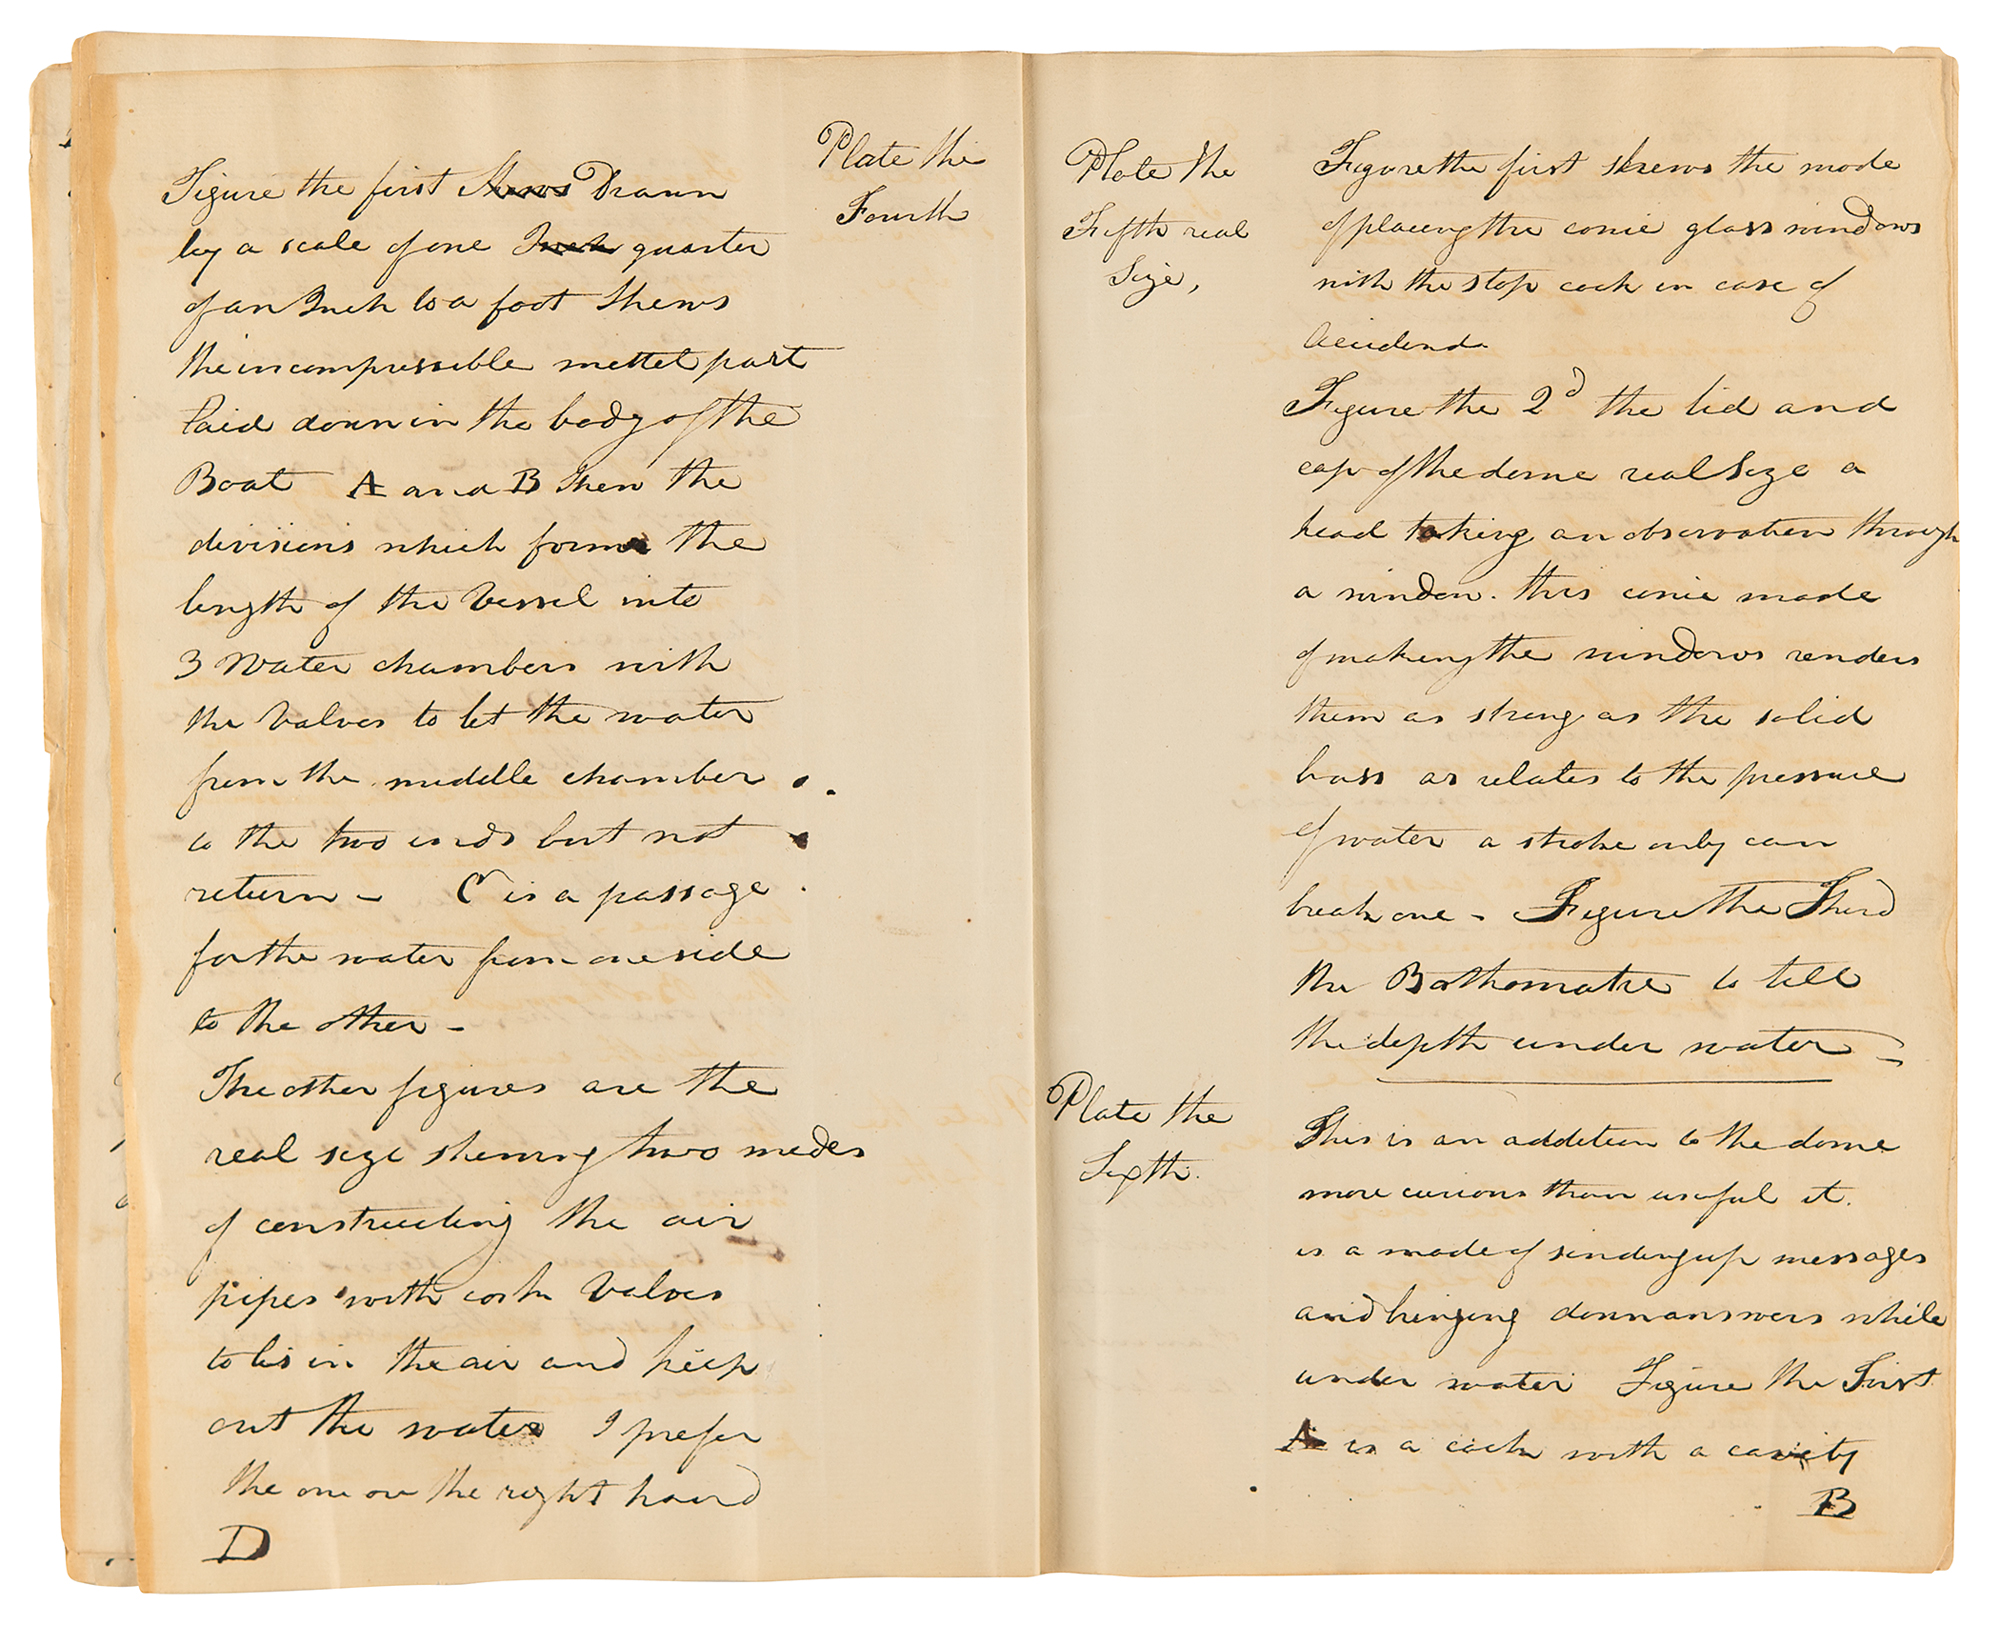 Plate the
Fourth
Figure the first Shews Drawn
by a scale of one Inch quarter
of an Inch to a foot Shews
the incompressible mettel part
laid down in the body of the
Boat A and B Shew the
divisions which form the
length of the Vessel into
3 Water chambers with
the Valves to let the water
from the middle chamber
to the two ends but not
return - C is a passage
for the water from one side
to the other -
The other figures are the
real size shewing two modes
of constructing the air
pipes with cork Valves
to let in the air and keep
out the water I prefer
the one on the right hand
D
Plate the
Fifth real
Size,
Figure the first shews the mode
of placing the conic glass windows
with the stop cock in case of
Accidend.
Figure the 2d the lid and
cap of the dome real Size a
head taking an observation through
a window. this conic mode
of making the windows renders
them as strong as the solid
brass as relates to the pressure
of water a stroke only can
break one - Figure the Third
the Bathomatre to tell
the depth under water -
Plate the
Sixth.
This is an addition to the dome
more curious than useful it.
is a mode of sending up messages
and bringing down answers while
under water Figure the First
A is a cock with a cavity
B